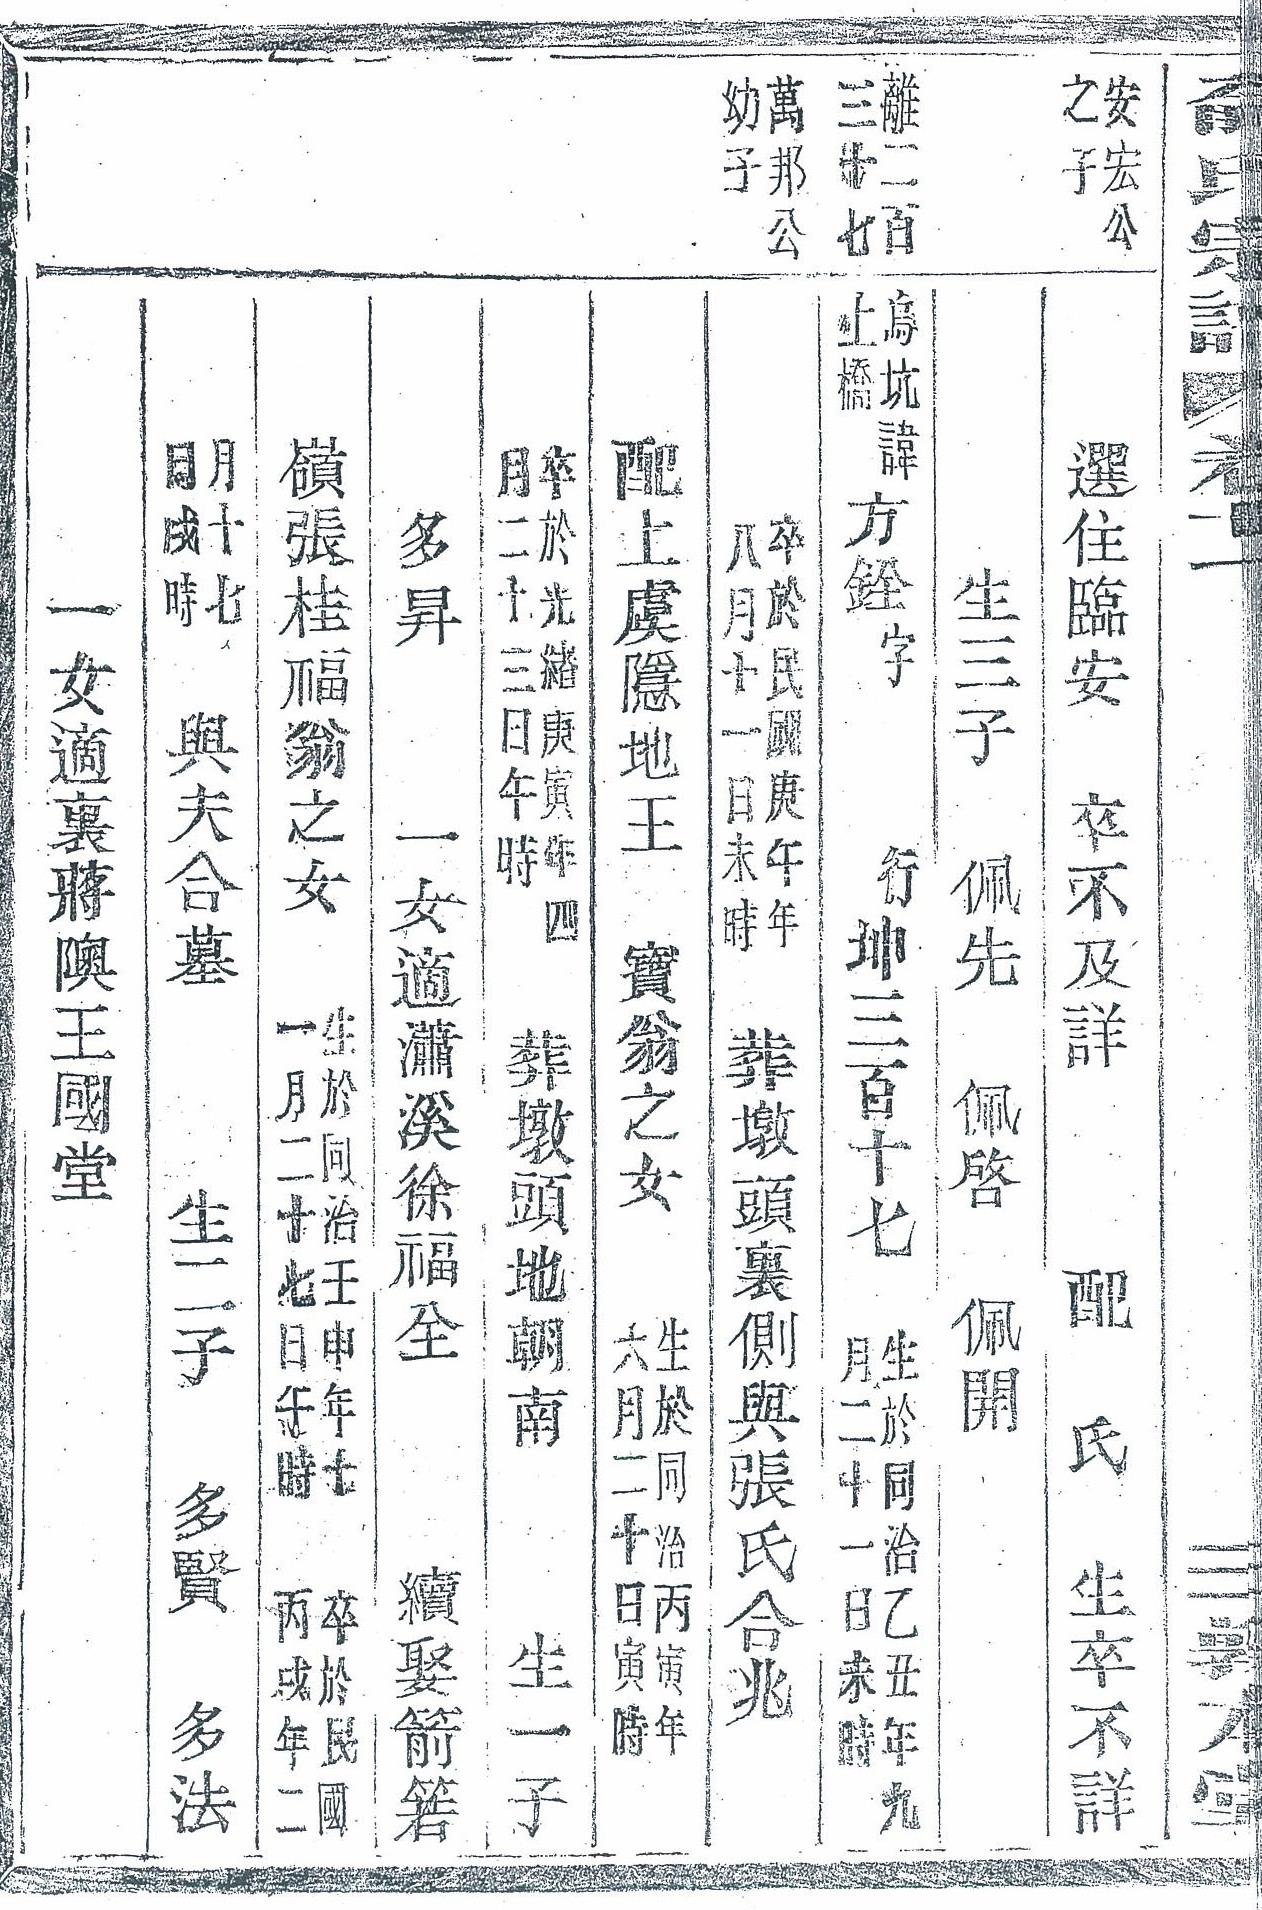 氏宗譜 卷一 三 敦本堂
安宏公
之子
選住臨安 卒不及詳 配 氏 生卒不詳
生三子 佩先 佩啓 佩開
離二百
三十七
烏坑諱
上橋
方銓字 行坤三百十七
生於同治乙丑年九
月二十一日未時
萬邦公
幼子
卒於民國庚午年
八月十一日未時
葬墩頭裏側與張氏合兆
配上虞隱地王 寶翁之女
生於同治丙寅年
六月二十日寅時
卒於光緒庚寅年四
月二十三日午時
葬墩頭地朝南 生一子
多昇 一女適瀟溪徐福全 續娶箭箬
嶺張桂福翁之女
生於同治壬申年十
一月二十七日午時
卒於民國
丙戌年二
月十七
日戌時
與夫合墓 生二子 多賢 多法
一女適裏蔣隩王國堂